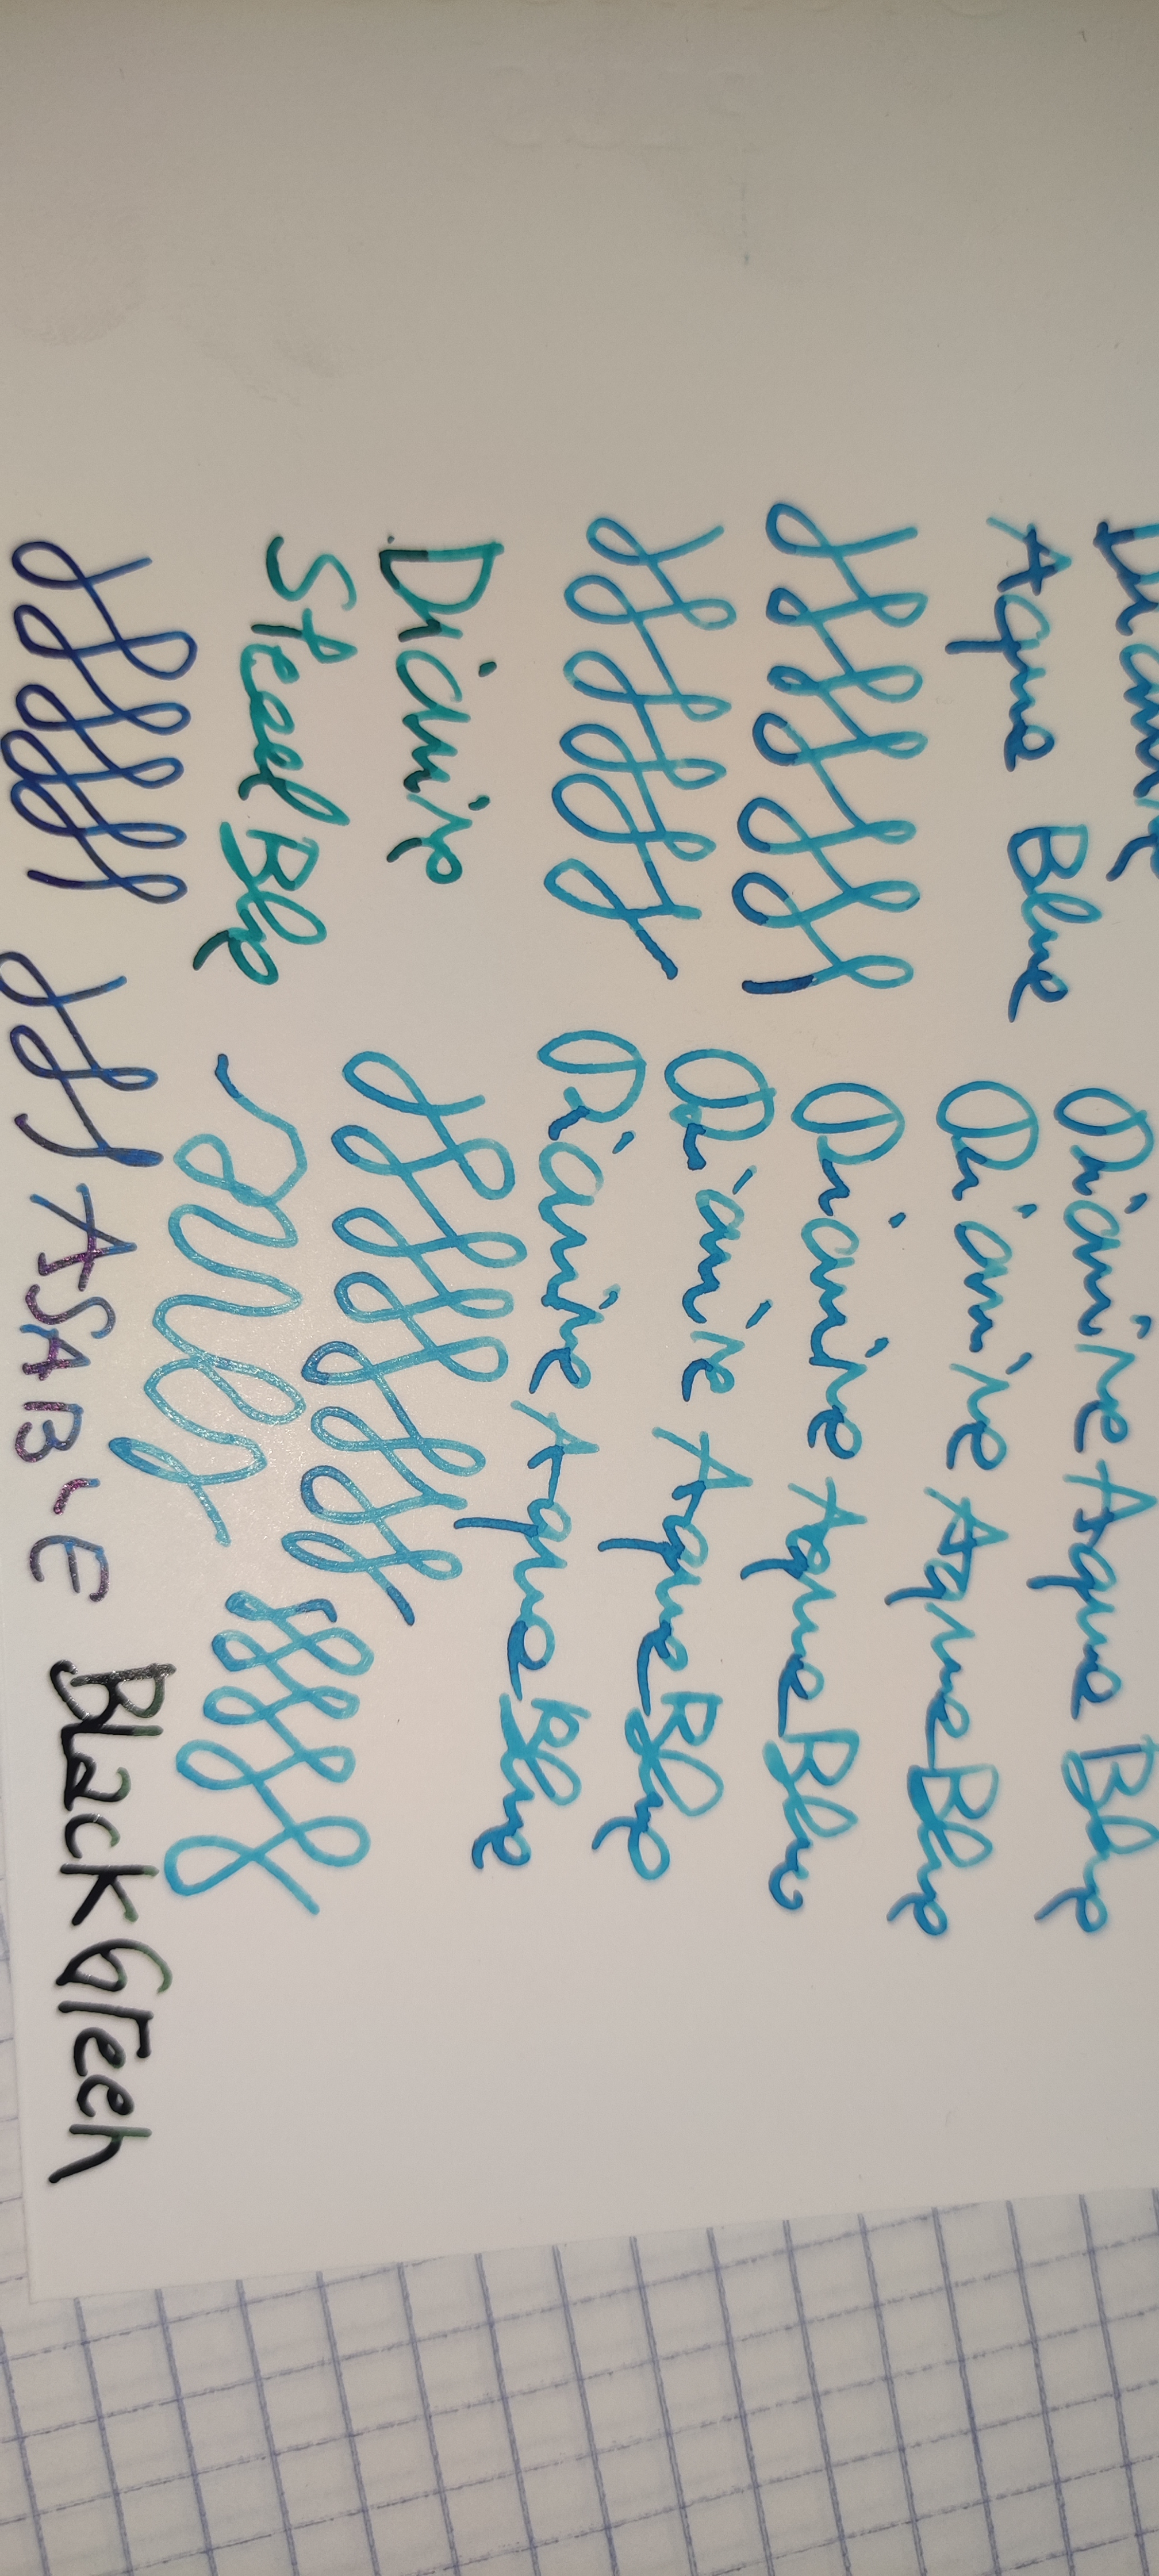 Diamine Diamine Aqua Blue
Aqua Blue Diamine Aqua Blue
Diamine Aqua Blue
Diamine Aqua Blue
Diamine Aqua Blue
Diamine
Steel Blue
Black Green